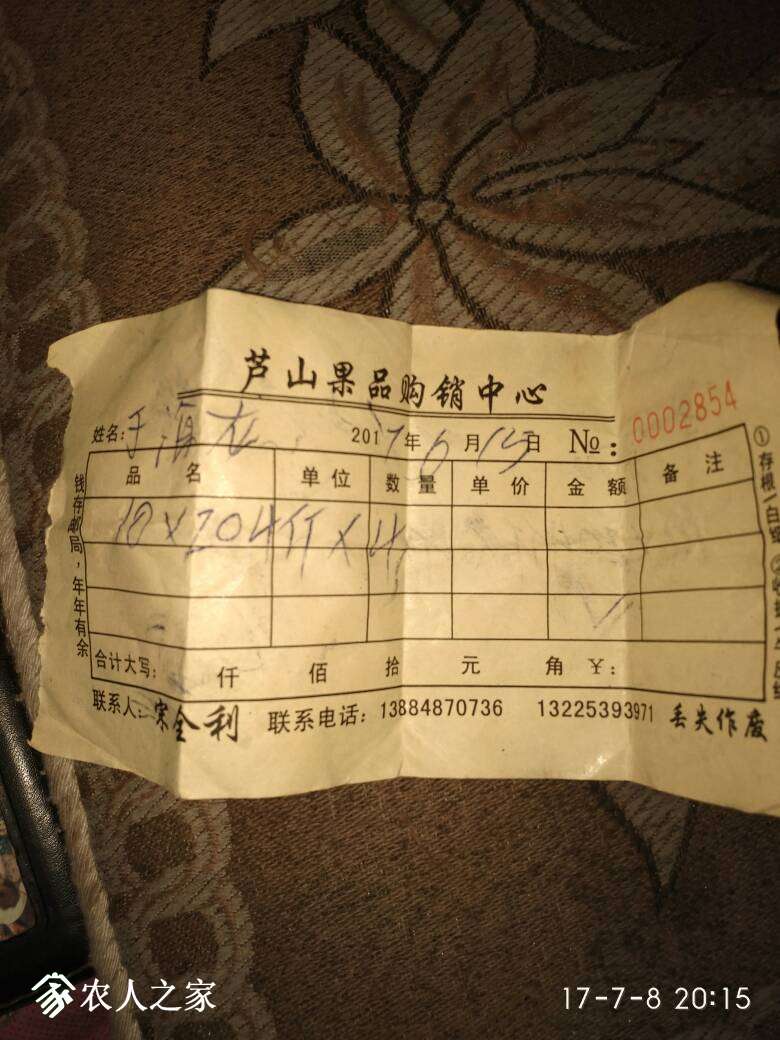 芦山果品购销中心
姓名:于海龙 2017年6月15日 №: 0002854
品名 单位 数量 单价 金额 备注
10×204斤×4
合计大写: 仟 佰 拾 元 角 ¥:
联系人:宋全利 联系电话:13884870736 13225393971 丢失作废
钱存邮局,年年有余
①存根(白
农人之家
17-7-8 20:15